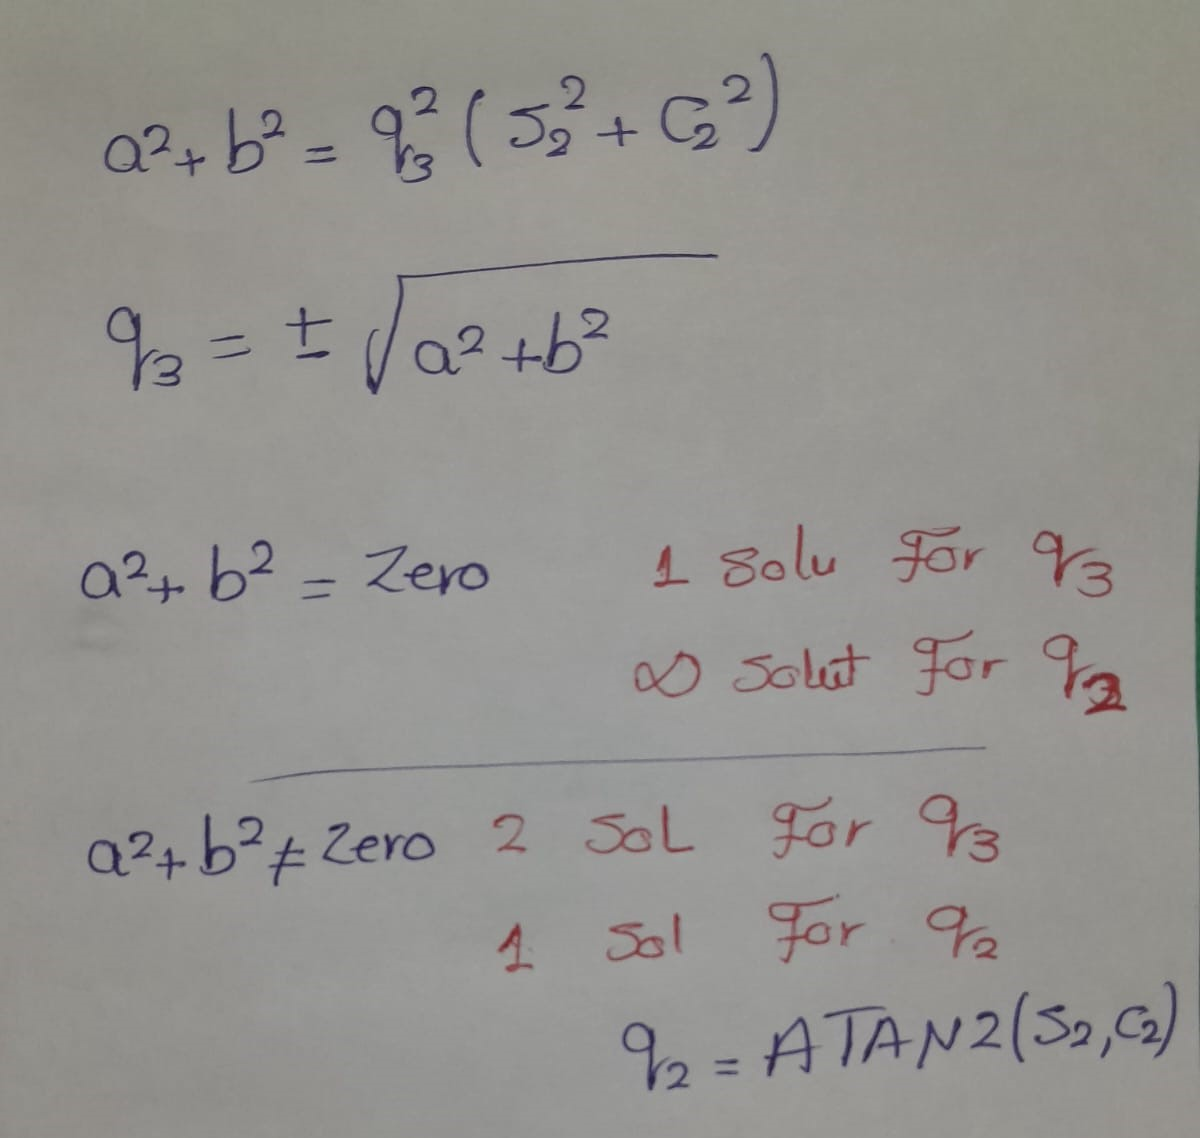 a²+ b² = q₃² ( S₂² + C₂² )
q₃ = ± √a² + b²
a²+ b² = Zero 1 Solu For q₃
∞ Solut For q₂
a²+ b² ≠ Zero 2 SoL For q₃
1 Sol For q₂
q₂ = ATAN2(S₂,C₂)